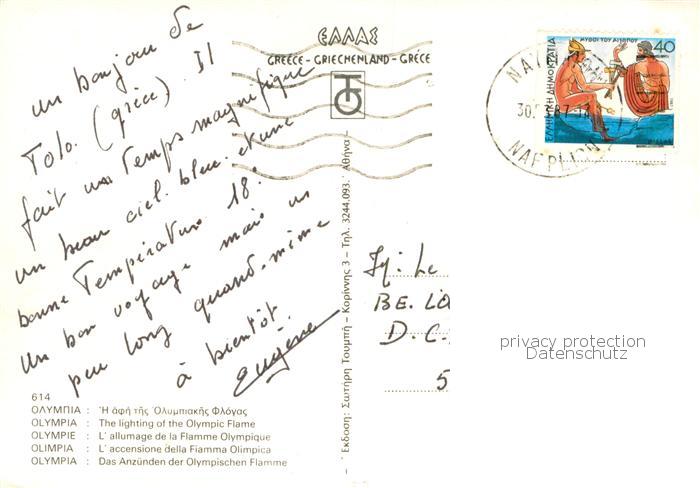 un bonjour de
Tolo. (grèce) Il
fait un Temps magnifique
un beau ciel bleu. et une
bonne Température 18°
Un bon voyage mais un
peu long quand-même
à bientôt.
Eugène
ΕΛΛΑΣ
GREECE - GRIECHENLAND - GRÈCE
614
ΟΛΥΜΠΙΑ : Ἡ ἁφή τῆς Ὀλυμπιακῆς Φλόγας
OLYMPIA : The lighting of the Olympic Flame
OLYMPIE : L' allumage de la Flamme Olympique
OLIMPIA : L' accensione della Fiamma Olimpica
OLYMPIA : Das Anzünden der Olympischen Flamme
Ἔκδοση: Σωτήρη Τουμπή - Κορίννης 3 - Τηλ. 3244.093. Ἀθήνα
ΜΥΘΟΙ ΤΟΥ ΑΙΣΩΠΟΥ
40
ΕΛΛΗΝΙΚΗ ΔΗΜΟΚΡΑΤΙΑ
NAFPLION
Le
BE. LO
D.C.
5
privacy protection
Datenschutz